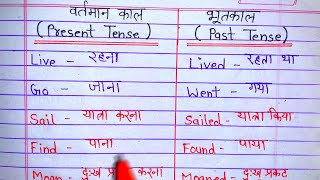 वर्तमान काल भूतकाल
(Present Tense) (Past Tense)
Live - रहना Lived - रहता था
Go - जाना Went - गया
Sail - यात्रा करना Sailed - यात्रा किया
Find - पाना Found - पाया
Moan - दुःख करना Moaned - दुःख प्रकट